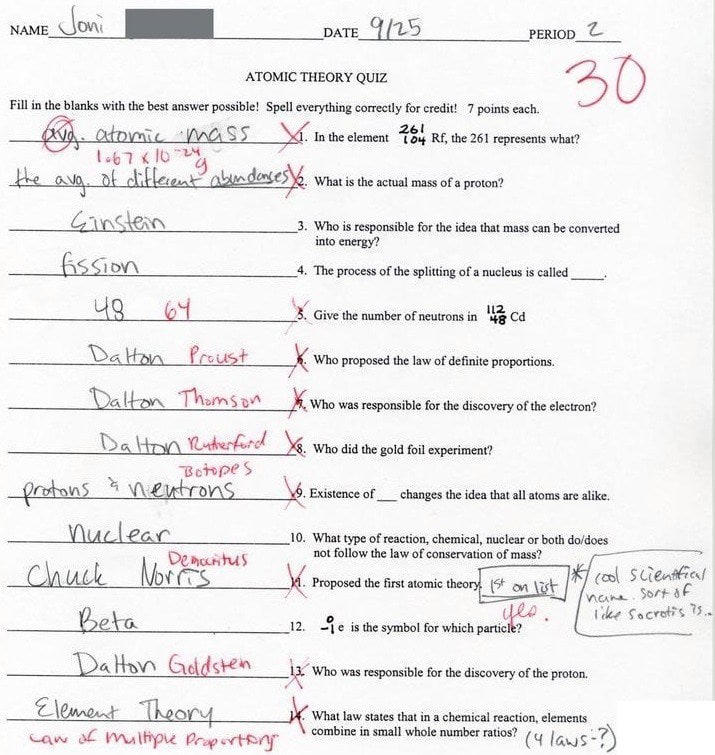 NAME Joni DATE 9/25 PERIOD 2
30
ATOMIC THEORY QUIZ
Fill in the blanks with the best answer possible! Spell everything correctly for credit! 7 points each.
avg. atomic mass 1. In the element 261 104 Rf, the 261 represents what?
1.67 x 10⁻²⁴ g
the avg. of different abundanses 2. What is the actual mass of a proton?
Einstein 3. Who is responsible for the idea that mass can be converted
into energy?
fission 4. The process of the splitting of a nucleus is called _____.
48 64 5. Give the number of neutrons in 112 48 Cd
Dalton Proust 6. Who proposed the law of definite proportions.
Dalton Thomson 7. Who was responsible for the discovery of the electron?
Dalton Rutherford 8. Who did the gold foil experiment?
Isotopes
protons & neutrons 9. Existence of ___ changes the idea that all atoms are alike.
nuclear 10. What type of reaction, chemical, nuclear or both do/does
not follow the law of conservation of mass?
Democritus
Chuck Norris 11. Proposed the first atomic theory. 1st on list
* cool scientifical
name. Sort of
like Socrotis is..
yes.
Beta 12. 0 -1 e is the symbol for which particle?
Dalton Goldstein 13. Who was responsible for the discovery of the proton.
Element Theory 14. What law states that in a chemical reaction, elements
combine in small whole number ratios? (4 laws-?)
Law of Multiple Proportions